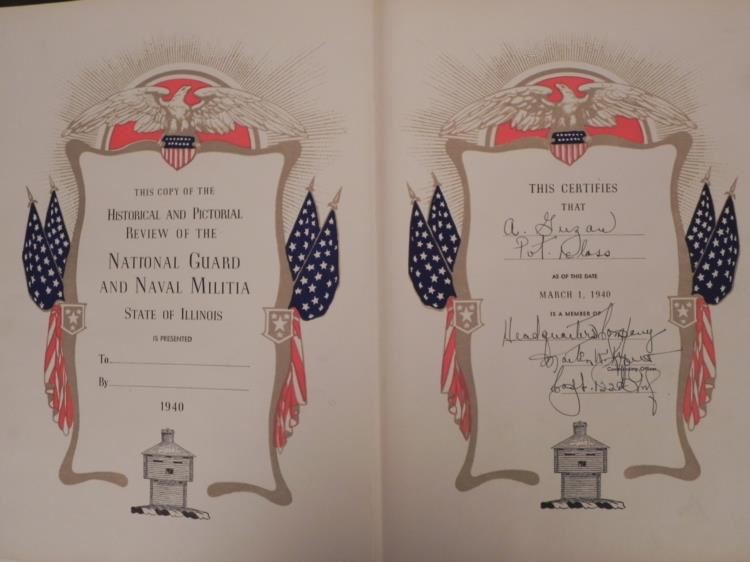 THIS COPY OF THE
HISTORICAL AND PICTORIAL
REVIEW OF THE
NATIONAL GUARD
AND NAVAL MILITIA
STATE OF ILLINOIS
IS PRESENTED
To
By
1940
THIS CERTIFIES
THAT
A. Guzau
Pvt. Class
AS OF THIS DATE
MARCH 1, 1940
IS A MEMBER OF
Headquarters Company
Commanding Officer
Capt.